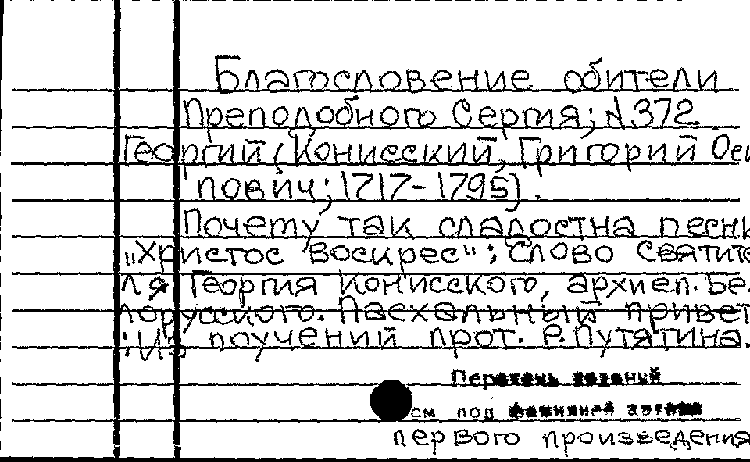 Благословение обители
Преподобного Сергия; А372
Георгий (Конисский, Григорий Оси
пович; 1717-1795).
Почему так сладостна песнь
„Христос Воскрес“: Слово Святите
ля Георгия Конисского, архиеп. Бе
лорусского. Пасхальный привет
: Из поучений прот. Р. Путятина.
Перечень изданий
см под фамилией автора
первого произведения